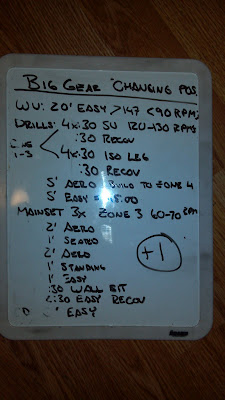 BIG GEAR CHANGING POS.
WU: 20' EASY > 147 (<90 RPM)
DRILLS: 4x:30 SU 120-130 RPMS
:30 RECOV
1-3
4x:30 ISO LEG
:30 RECOV
5' AERO BUILD TO ZONE 4
5' EASY
MAINSET 3x ZONE 3 60-70 RPM
2' AERO
1' SEATED
2' AERO
1' STANDING
1' EASY
:30 WALL SIT
:30 EASY RECOV
+1
' EASY